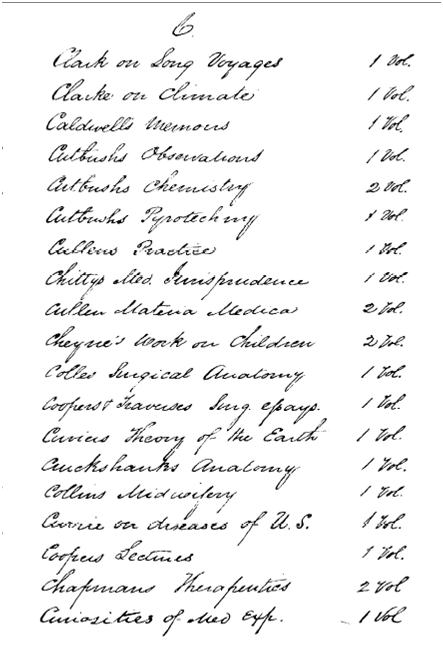 C.
Clark on Long Voyages 1 Vol.
Clarke on Climate 1 Vol.
Caldwell's Memoirs 1 Vol.
Cutbushs Observations 1 Vol.
Cutbushs Chemistry 2 Vol.
Cutbushs Pyrotechny 1 Vol.
Cullens Practice 1 Vol.
Chittys Med. Jurisprudence 1 Vol.
Cullen Materia Medica 2 Vol.
Cheyne's Work on Children 2 Vol.
Colles Surgical Anatomy 1 Vol.
Coopers & Traverses Surg. essays. 1 Vol.
Cuviers Theory of the Earth 1 Vol.
Cruckshanks Anatomy 1 Vol.
Collins Midwifery 1 Vol.
Currie on diseases of U.S. 1 Vol.
Coopers Lectures 1 Vol.
Chapmans Therapeutics 2 Vol
Curiosities of Med Exp. 1 Vol